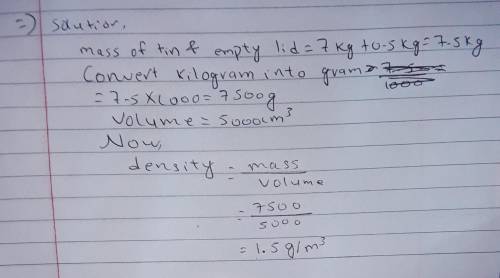 =) Solution,
mass of tin & empty lid = 7 kg + 0.5 kg = 7.5 kg
Convert kilogram into gram =
= 7.5 × 1000 = 7500g
Volume = 5000cm³
Now,
density = mass
volume
= 7500
5000
= 1.5 g/m³